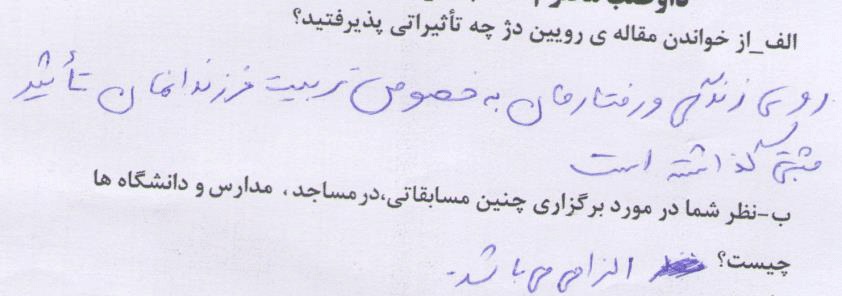 الف_از خواندن مقاله ی رویین دژ چه تأثیراتی پذیرفتید؟
روی زندگی و رفتارمان به خصوص تربیت فرزندانمان تأثیر
مثبتی گذاشته است
ب-نظر شما در مورد برگزاری چنین مسابقاتی،درمساجد، مدارس و دانشگاه ها
چیست؟ الزامی می باشد.